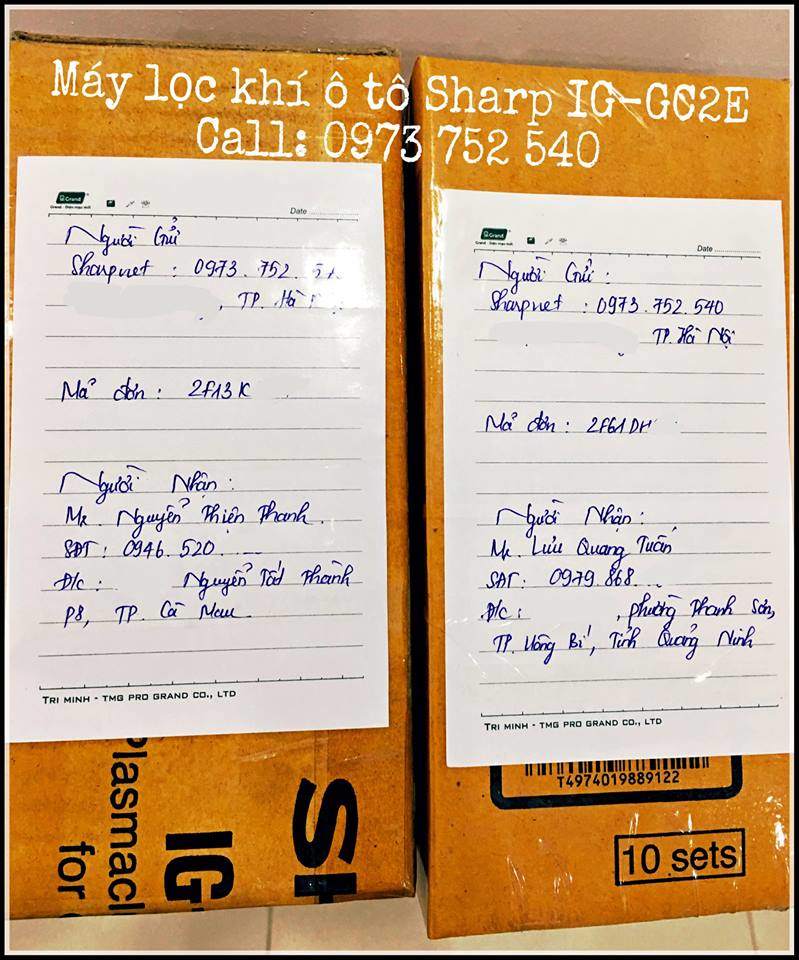 Máy lọc khí ô tô Sharp IG-GC2E
Call: 0973 752 540
Grand
Grand - Diện mạo mới
Date
Người Gửi
Sharpnet : 0973.752.54
, TP. Hà
Mả đơn : 2F13K
Người Nhận :
Mr. Nguyễn Thiện Thanh.
SĐT : 0946.520.
Đ/c : Nguyễn Tất Thành
P8, TP. Cà Mau
TRI MINH - TMG PRO GRAND CO., LTD
Grand
Grand - Diện mạo mới
Date
Người Gửi :
Sharpnet : 0973.752.540
TP. Hà Nội
Mả đơn : 2F61DH
Người Nhận :
Mr. Lưu Quang Tuấn
SĐT : 0979.868.
Đ/c : , phường Thanh Sơn,
TP. Uông Bí, Tỉnh Quảng Ninh
TRI MINH - TMG PRO GRAND CO., LTD
T4974019889122
10 sets
SH
IG-
Plasmacl
for